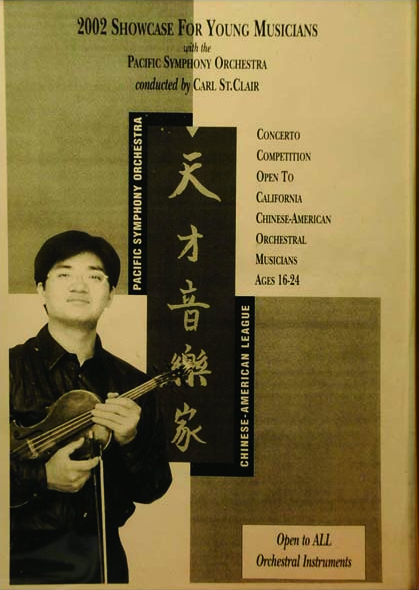 2002 SHOWCASE FOR YOUNG MUSICIANS
with the
PACIFIC SYMPHONY ORCHESTRA
conducted by CARL ST.CLAIR
PACIFIC SYMPHONY ORCHESTRA
天才音樂家
CHINESE-AMERICAN LEAGUE
CONCERTO
COMPETITION
OPEN TO
CALIFORNIA
CHINESE-AMERICAN
ORCHESTRAL
MUSICIANS
AGES 16-24
Open to ALL
Orchestral Instruments